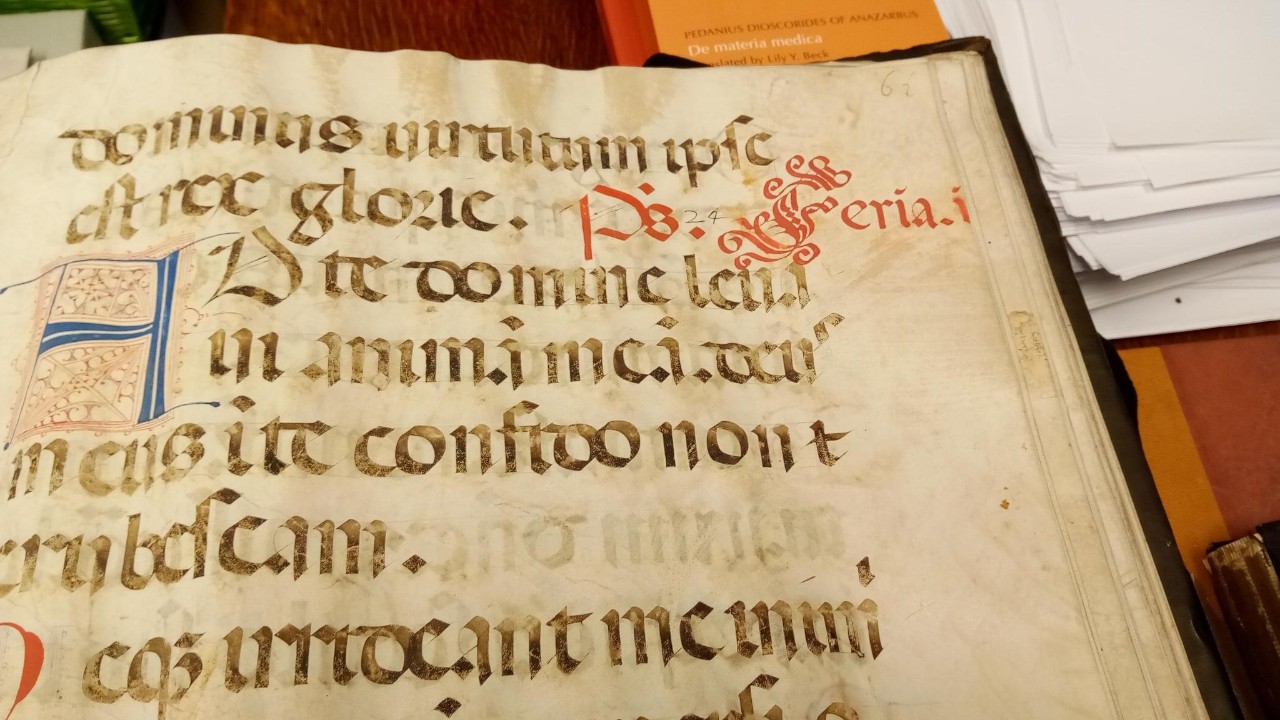 PEDANIUS DIOSCORIDES OF ANAZARBUS
De materia medica
translated by Lily Y. Beck
62
dominus uirtutum ipse
est rex glorie. Ps. 24 Feria.i
AD te domine leuaui
in animā meā.deus
meus ī te confido non
erubescam.
Neq3 irrideant me inimi